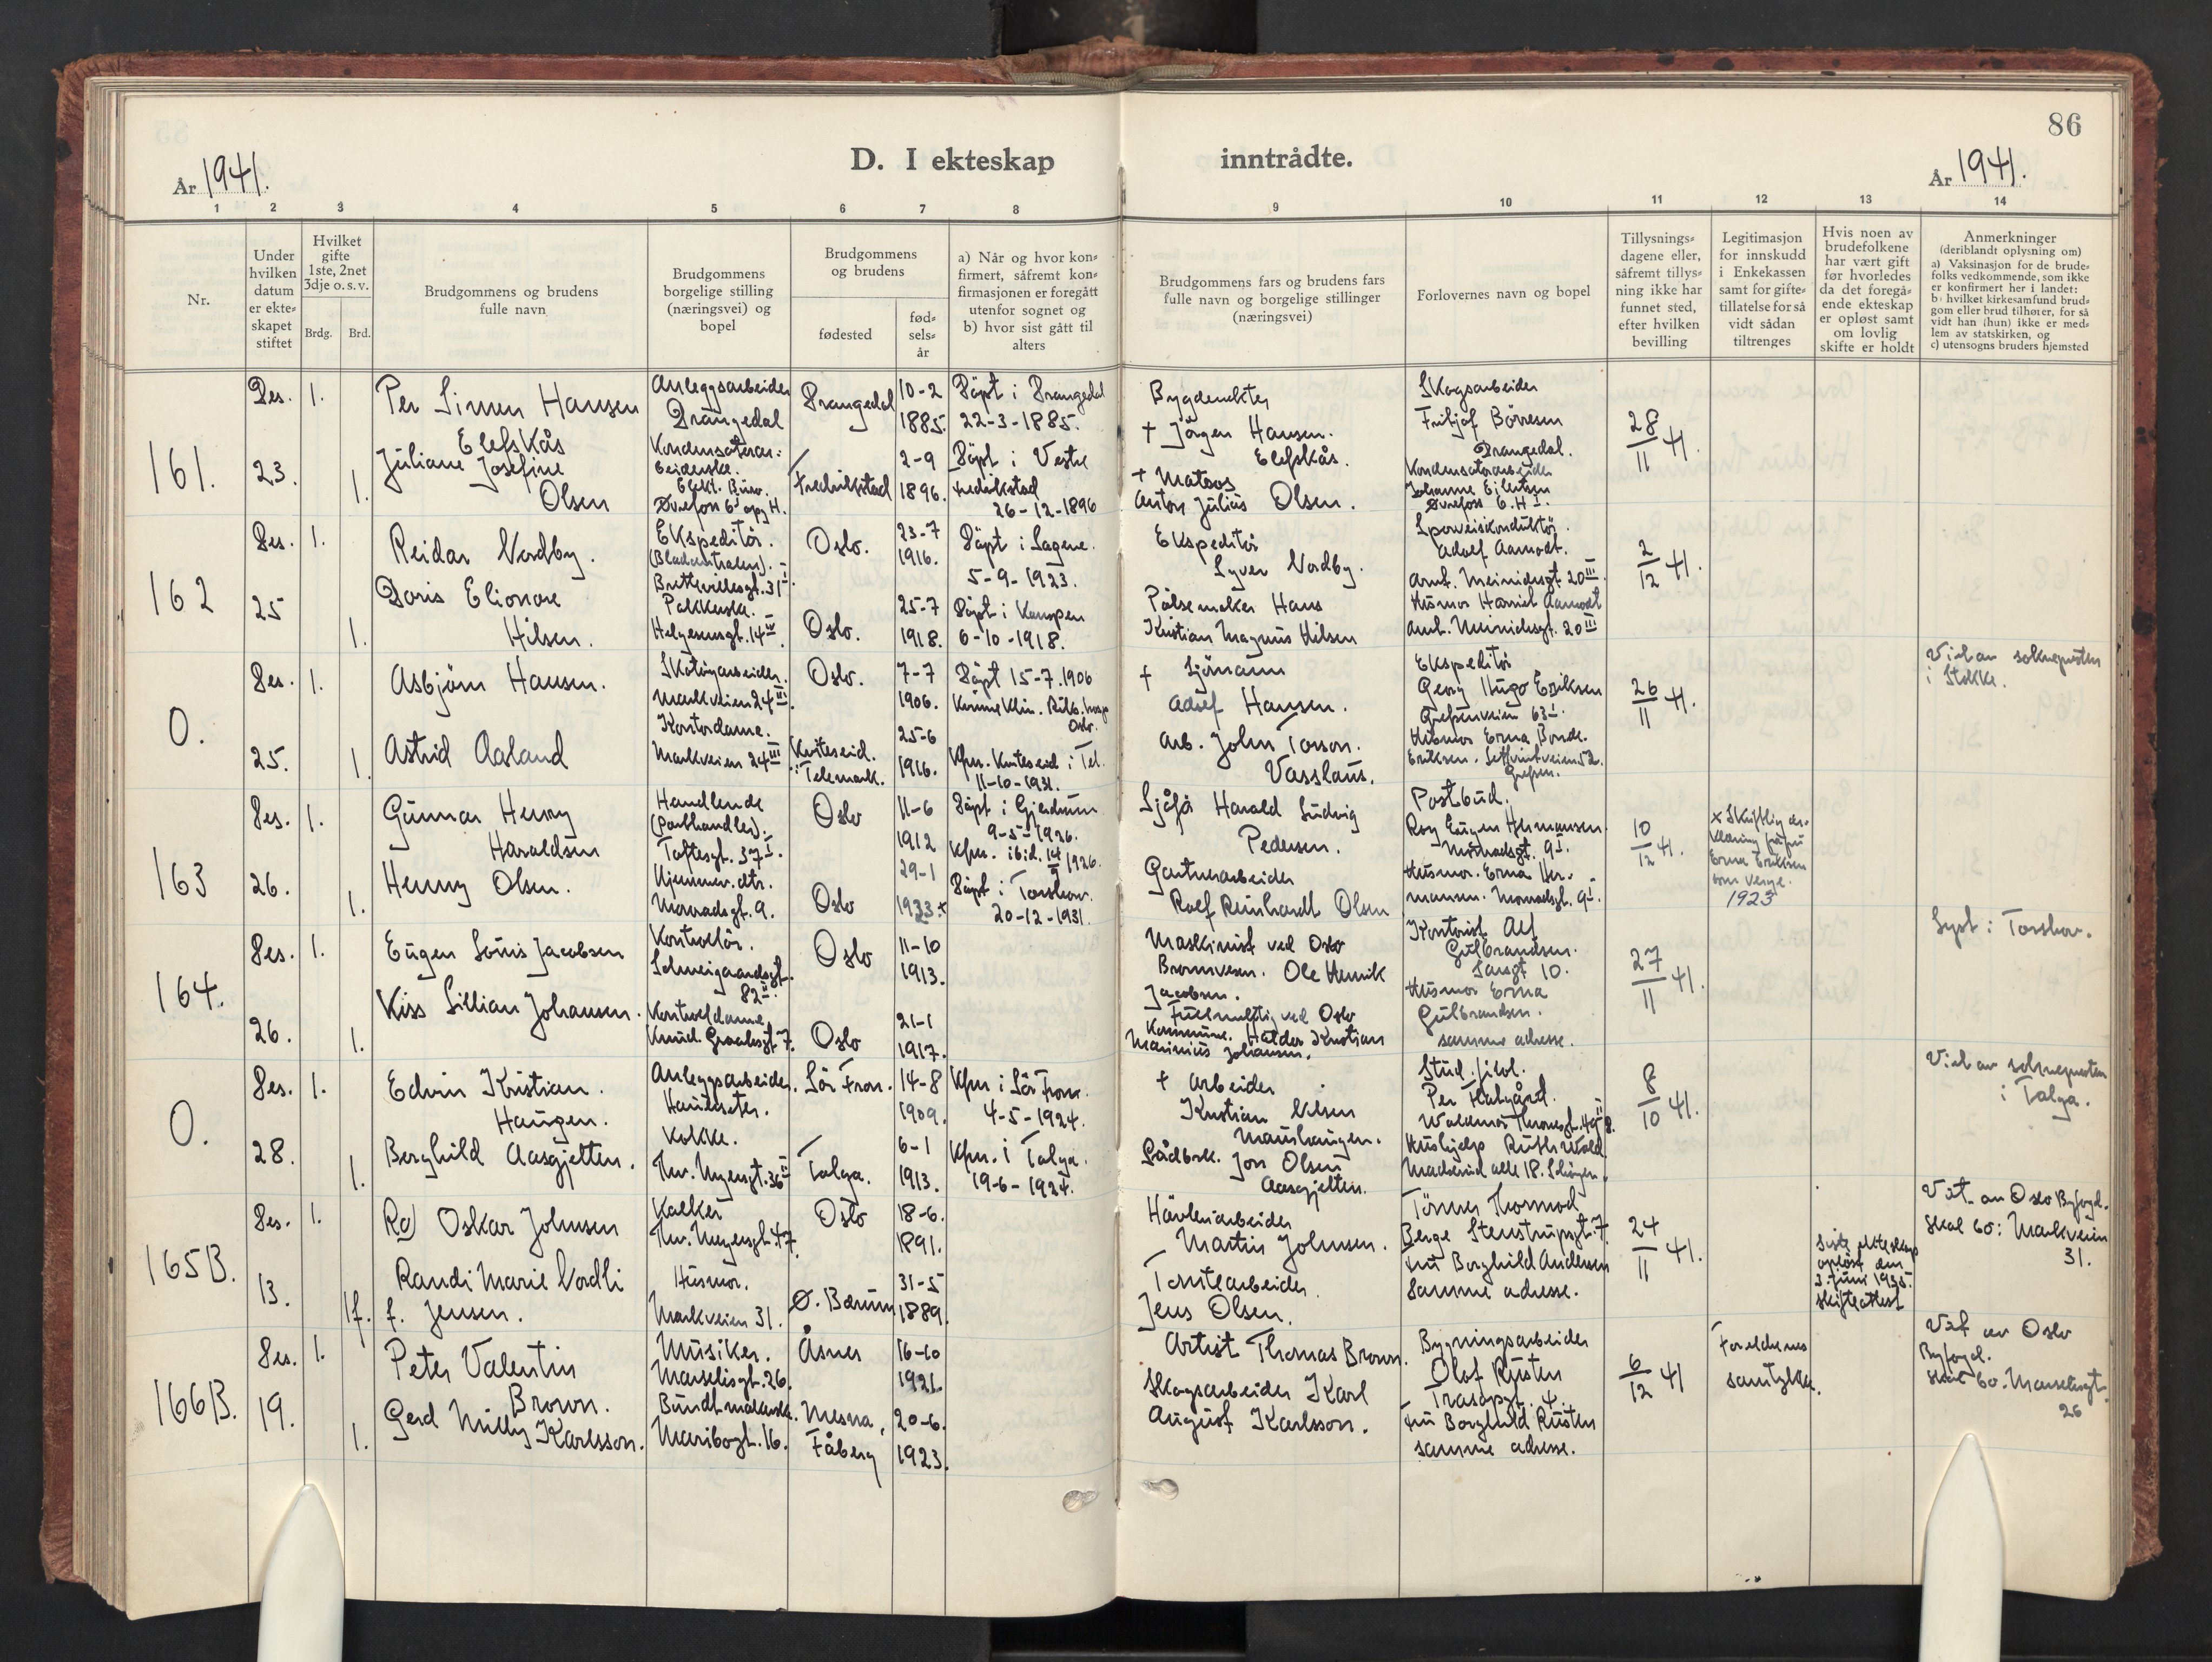 86
D. I ekteskap inntrådte.
År 1941.
År 1941.
1 2 3 4 5 6 7 8 9 10 11 12 13 14
Nr.
Under
hvilken
datum
er ekte-
skapet
stiftet
Hvilket
gifte
1ste, 2net
3dje o. s. v.
Brdg. Brd.
Brudgommens og brudens
fulle navn
Brudgommens
borgelige stilling
(næringsvei) og
bopel
Brudgommens
og brudens
fødested
fød-
sels-
år
a) Når og hvor kon-
firmert, såfremt kon-
firmasjonen er foregått
utenfor sognet og
b) hvor sist gått til
alters
Brudgommens fars og brudens fars
fulle navn og borgelige stillinger
(næringsvei)
Forlovernes navn og bopel
Tillysnings-
dagene eller,
såfremt tillys-
ning ikke har
funnet sted,
efter hvilken
bevilling
Legitimasjon
for innskudd
i Enkekassen
samt for gifte-
tillatelse for så
vidt sådan
tiltrenges
Hvis noen av
brudefolkene
har vært gift
før hvorledes
da det foregå-
ende ekteskap
er opløst samt
om lovlig
skifte er holdt
Anmerkninger
(deriblandt oplysning om)
a) Vaksinasjon for de brude-
folks vedkommende, som ikke
er konfirmert her i landet:
b) hvilket kirkesamfund brud-
gom eller brud tilhører, for så
vidt han (hun) ikke er med-
lem av statskirken, og
c) utensogns bruders hjemsted
161.
Des.
23.
1.
1.
Per Simen Hansen
Elefskås
Juliane Josefine
Olsen
Anleggsarbeider
Drangedal
Drangedal
Fredrikstad
10-2
1885.
2-9
1896.
Döpt i Drangedal
22-3-1885.
Döpt i Vestre
Fredrikstad
26-12-1896
† Jörgen Hansen.
Elefskås.
† Matros
Anton Julius Olsen.
Skogsarbeider
Fritjof Börresen
Drangedal.
Kondensatorarbeider
28
11 41.
162
Des.
25
1.
1.
Reidar Nordby.
Doris Elionore
Hilsen.
Ekspeditör.
(Bladcentralen).
Pakkerske.
Helgesensgt. 14 IV.
Oslo.
Oslo.
23-7
1916.
25-7
1918.
Döpt i Sagene.
5-9-1923.
Döpt i Kampen
6-10-1918.
Ekspeditör
Syver Nordby.
Pölsemaker Hans
Kristian Magnus Hilsen
Sporveiskonduktör.
Adolf Aamodt.
Arnt. Meinichsgt. 20 III.
Husmor Harriet Aamodt
Arnt. Meinichsgt. 20 III
2
12 41.
0.
Des.
25.
1.
1.
Asbjörn Hansen.
Astrid Aasland
Skotöyarbeider.
Markveien 24 III.
Kontordame.
Markveien 24 III
Oslo.
Kviteseid.
i Telemark.
7-7
1906.
25-6
1916.
Döpt 15-7.1906
Oslo.
Kfm. Kviteseid i Tel.
11-10-1931.
† Sjömann
Adolf Hansen.
Arb. John Torson.
Ekspeditör
Georg Hugo Eriksen
Grefsenveien 63 I.
Husmor Erna Bonde.
Grefsen.
26
11 41.
Viet av sokneprsten
i Stokke.
163
Des.
26.
1.
1.
Gunnar Henry
Haraldsen
Henny Olsen.
Handlende
Toftesgt. 37 I.
Hjemmev. dtr.
Monradsgt. 9.
Oslo
Oslo
11-6
1912
29-1
1923 x
Döpt i Gjerdrum
9-5-1926.
Döpt i Torshov.
20-12-1931.
Sjåfør Harald Ludvig
Pedersen.
Gartnerarbeider
Rolf Reinhardt Olsen
Postbud.
Roy Eugen Hermansen.
Monradsgt. 9 I.
Husmor. Erna Her-
mansen. Monradsgt. 9 I.
10
12 41.
x Skriftlig er-
klæring frå fru
Erna Eriksen
som verge.
1923
164.
Des.
26.
1.
1.
Eugen Louis Jacobsen
Kiss Lillian Johansen.
Kontrollör.
Schweigaardsgt.
82 II.
Kontroldame
Knud Graahsgt. 7.
Oslo
Oslo
11-10
1913.
21-1
1917.
Maskinist ved Oslo
Brannvesen. Ole Henrik
Jacobsen.
Fullmektig ved Oslo
Kommune. Haldor Kristian
Marinius Johansen.
Kontorist Alf
Gulbrandsen.
Sarsgt 10.
Husmor Erna
Gulbrandsen.
samme adresse.
27
11 41.
Lyst i Torshov.
0.
Des.
28.
1.
1.
Edvin Kristian.
Haugen.
Borghild Aasgjelten.
Anleggsarbeider.
Kokke.
Thv. Meyersgt. 36 II
Sör Fron.
Tolga.
14-8
1909.
6-1
1913.
Kfm i Sör Fron.
4-5-1924.
Kfm. i Tolga.
19-6-1924.
† Arbeider
Kristian Nilsen
Maushaugen.
Gårdbrk. Jon Olsen
Aasgjelten.
Stud. filol.
Per Hulgård.
Hushjelp Ruth Wold
8
10 41.
Viet av sokneprsten
i Tolga.
165B.
Des.
13.
1.
1f.
Ro) Oskar Johnsen
Randi Marie Nordli
f. Jensen.
Kalker
Thv. Meyersgt. 47.
Husmor.
Markveien 31.
Oslo
Ø. Bærum
18-6.
1891.
31-5
1889.
Hövleriarbeider
Martin Johnsen.
Tomtearbeider
Jens Olsen.
Tömrer Thormod
Berge Stenstrupsgt. 7.
Fru Borghild Andersen
Samme adresse.
24
11 41.
Siste ekteskap
oplöst den
3. juni 1935.
Skifteattest
Vit. av Oslo Byfogd.
Skal bo: Markveien
31.
166B.
Des.
19.
1.
1.
Peter Valentin
Brown.
Gerd Milly Karlsson.
Musiker.
Marselisgt. 26.
Maribogt. 16.
Åsnes
Mesna,
Fåberg
16-10
1921.
20-6.
1923.
Artist Thomas Brown.
Skogsarbeider Karl
August Karlsson.
Bygningsarbeider
Olof Rusten
Trasopgt. 4.
Fru Borghild Rusten
samme adresse.
6
12 41
Foreldrenes
samtykke.
Vit av Oslo
Byfogd.
Skal bo. Marselisgt.
26